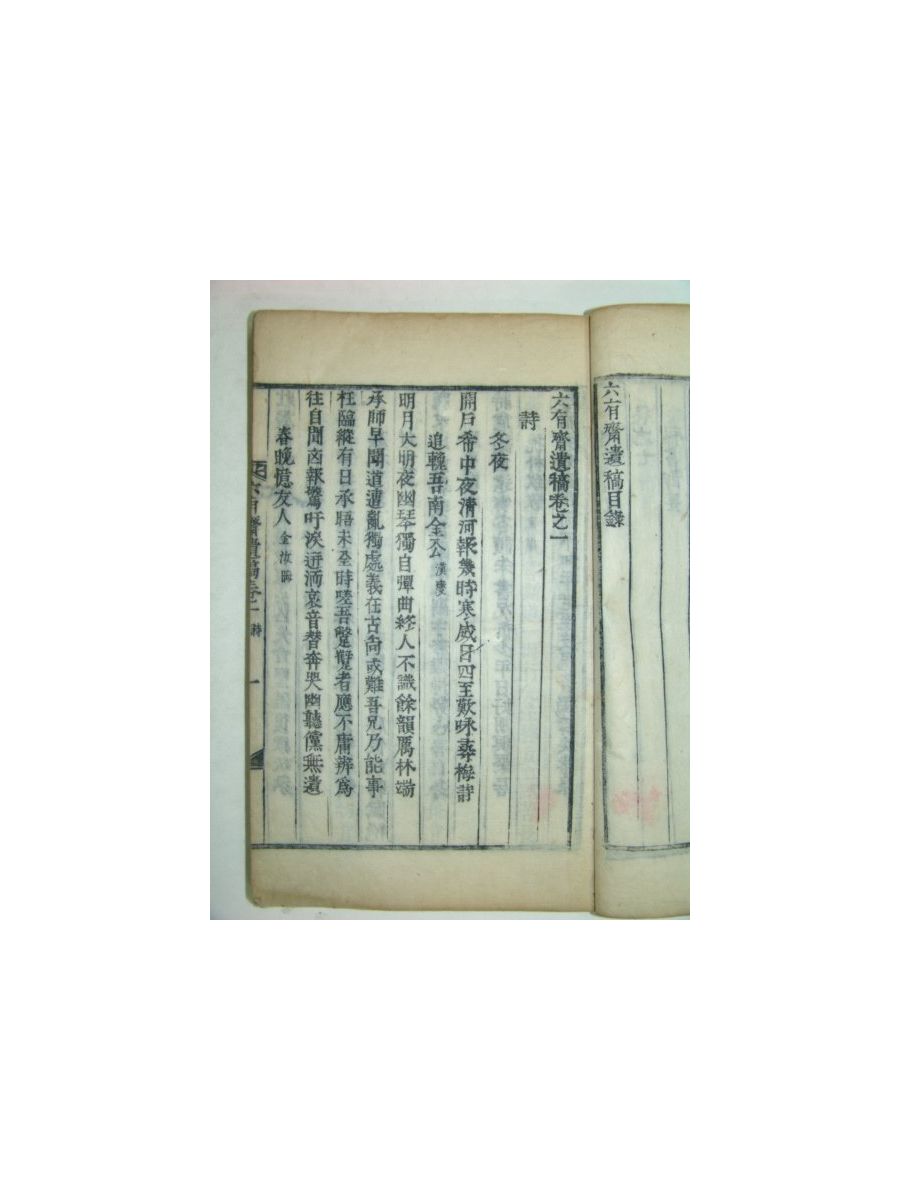 六有齋遺稿目錄
六有齋遺稿卷之一
詩
冬夜
開戶希中夜淸河報幾時寒威日四至歎咏尋梅詩
追輓吾南金公 漢慶
明月大明夜幽琴獨自彈曲終人不識餘韻厲林端
承師早聞道遭亂獨處義在古尙或難吾兄乃能事
枉臨縱有日承晤未全時嗟吾躄躄者應不庸辨爲
往自聞凶報驚吁淚迸洏哀音替奔哭幽聽儻無遺
春晩憶友人 金汝
六有齋遺稿卷一 詩 一